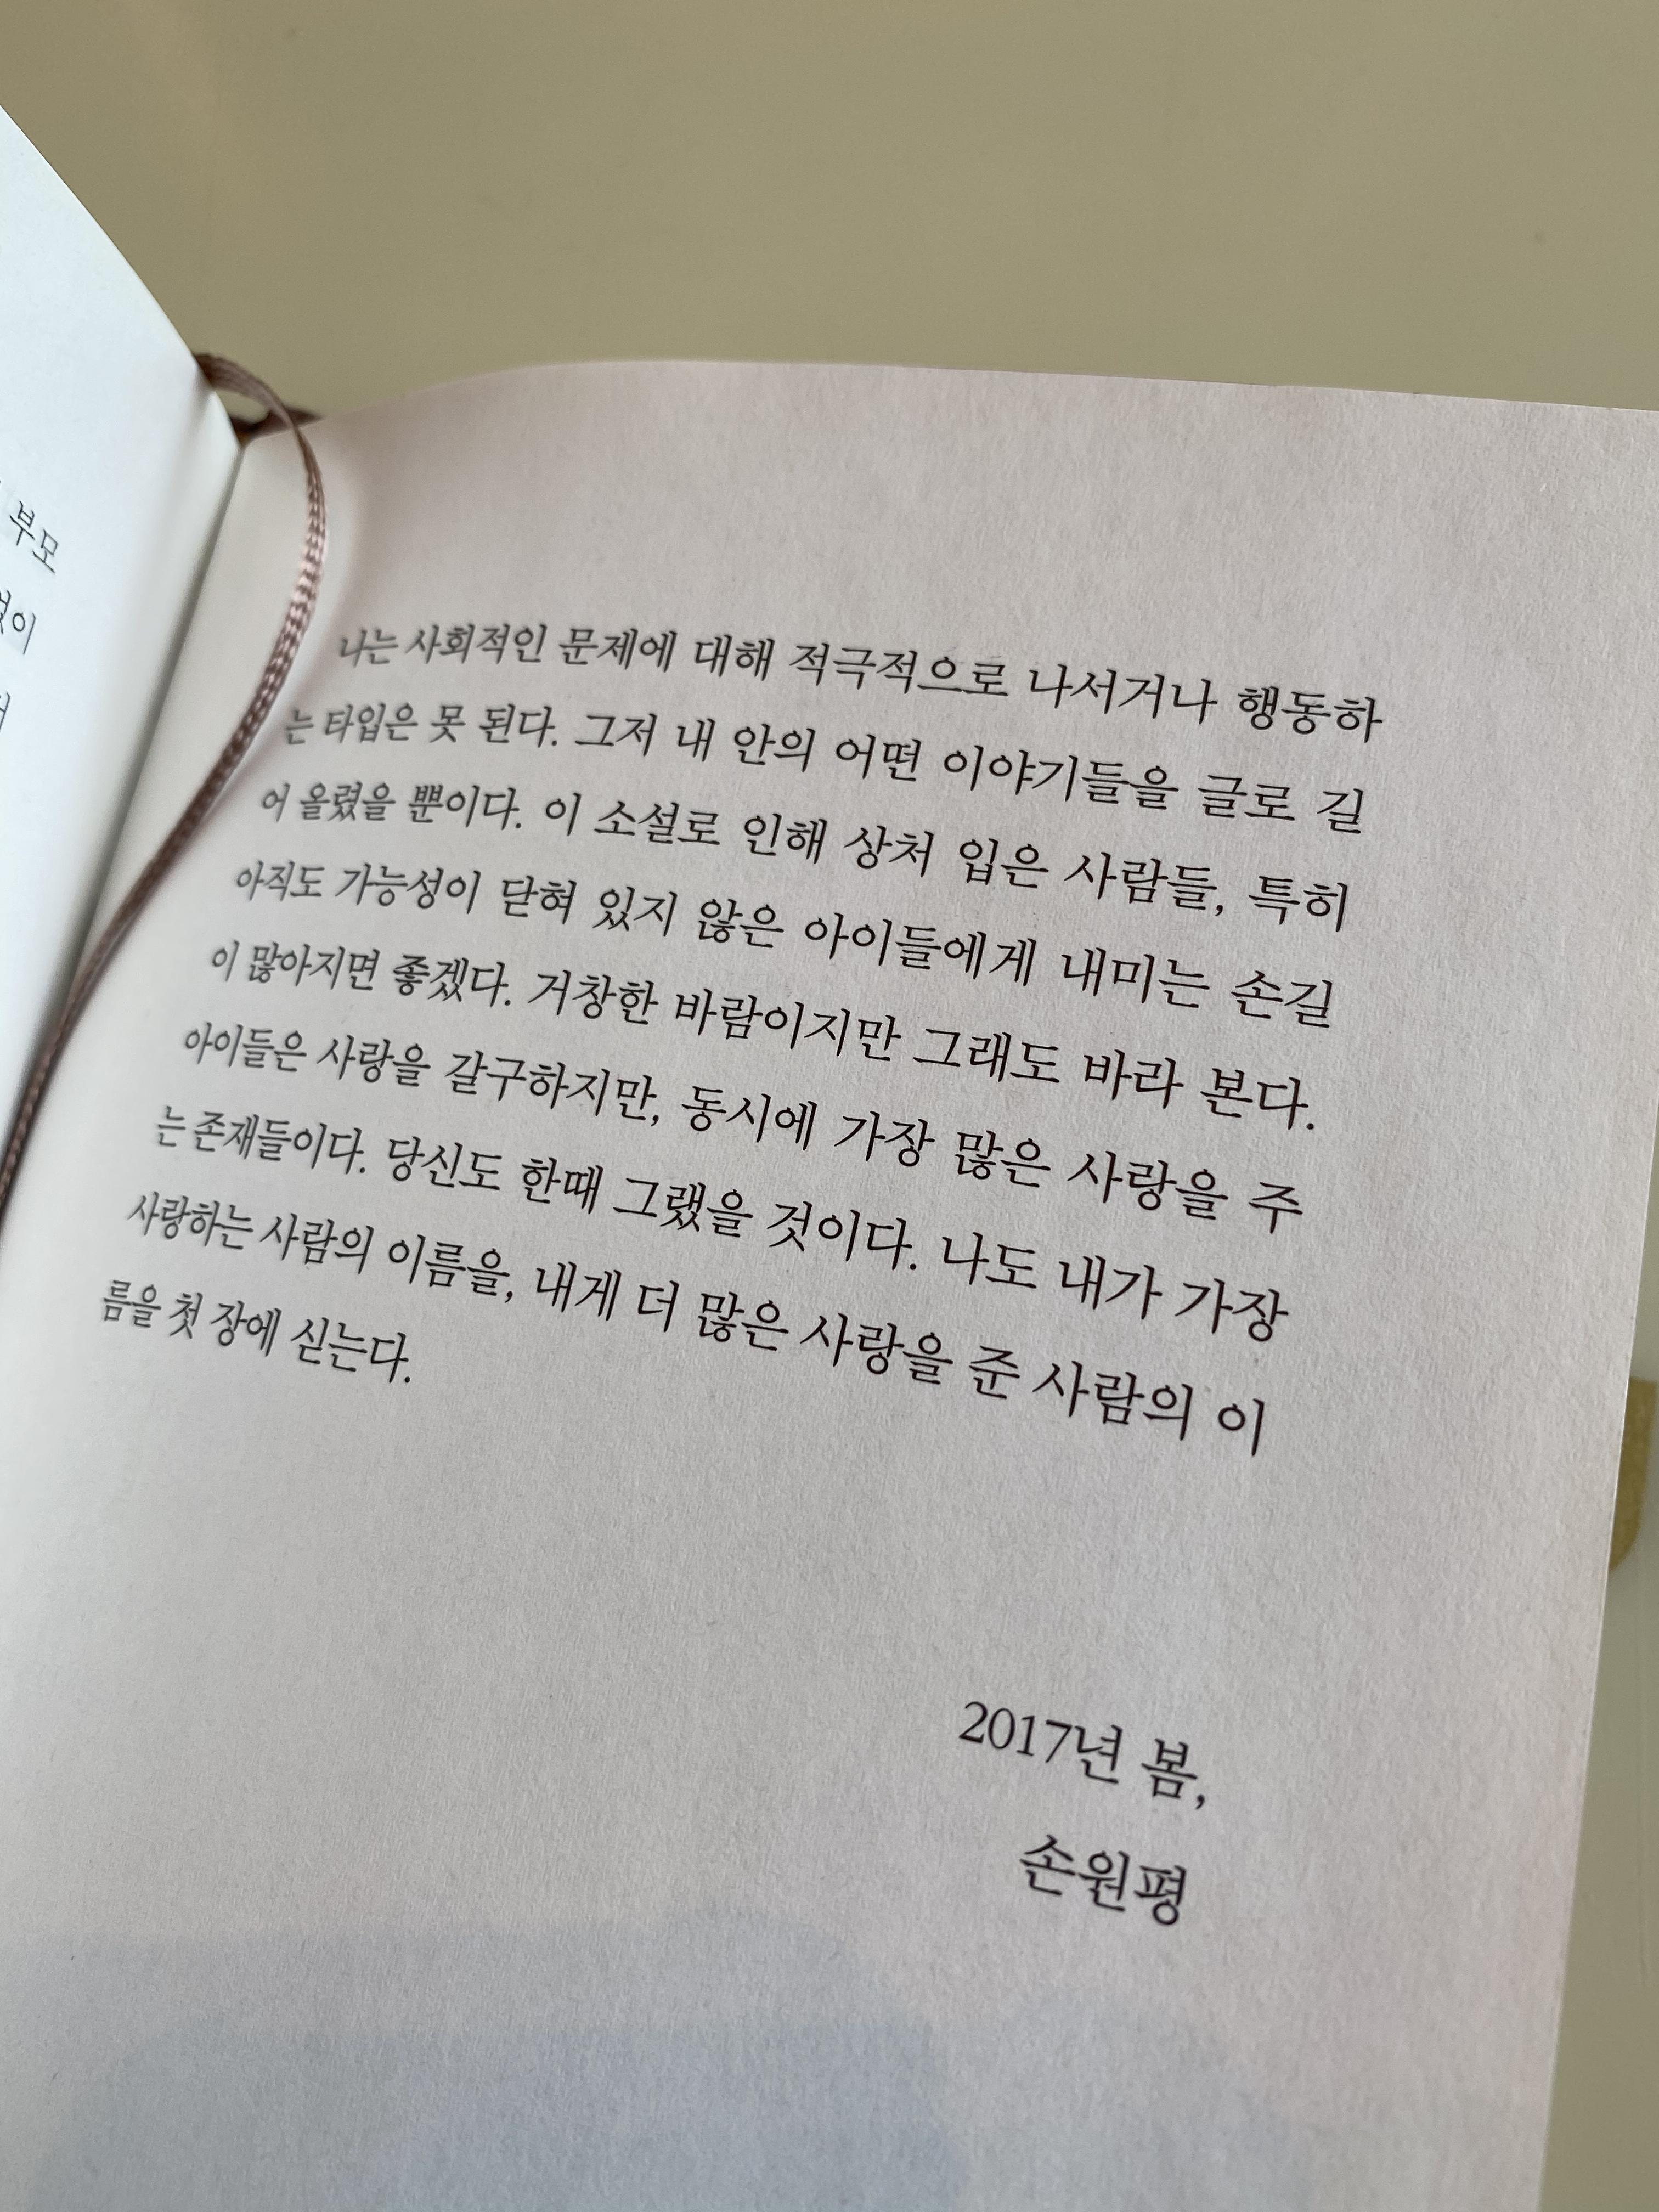 부모
나는 사회적인 문제에 대해 적극적으로 나서거나 행동하
는 타입은 못 된다. 그저 내 안의 어떤 이야기들을 글로 길
어 올렸을 뿐이다. 이 소설로 인해 상처 입은 사람들, 특히
아직도 가능성이 닫혀 있지 않은 아이들에게 내미는 손길
이 많아지면 좋겠다. 거창한 바람이지만 그래도 바라 본다.
아이들은 사랑을 갈구하지만, 동시에 가장 많은 사랑을 주
는 존재들이다. 당신도 한때 그랬을 것이다. 나도 내가 가장
사랑하는 사람의 이름을, 내게 더 많은 사랑을 준 사람의 이
름을 첫 장에 싣는다.
2017년 봄,
손원평